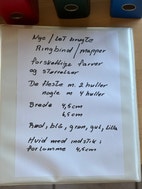 Nye / Let brugte
Ringbind / mapper
forskellige farver
og størrelser
De fleste m. 2 huller
nogle m 4 huller
Brede 4,5 cm
6,5 cm
Rød, blå, grøn, gul, lilla
Hvid med indstik i
for lomme 4,5 cm